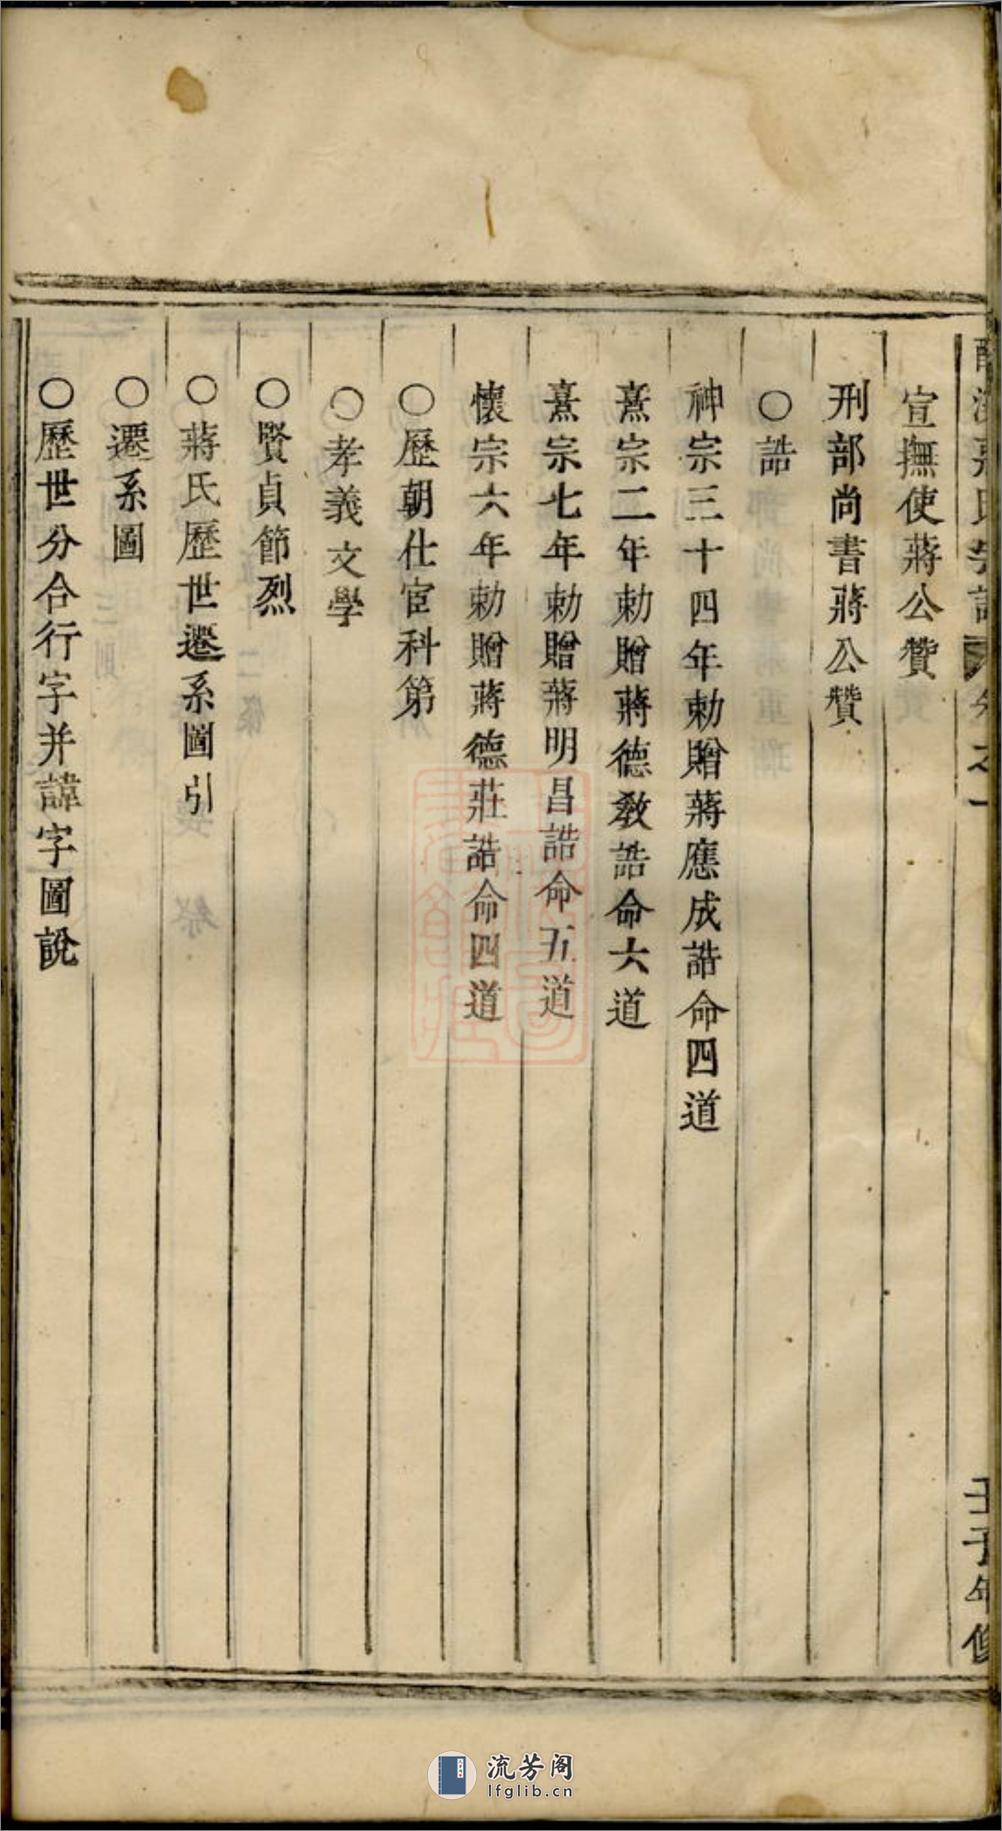 蔣氏宗譜 卷之一 壬子年修
宣撫使蔣公贊
刑部尚書蔣公贊
〇誥
神宗三十四年勅贈蔣應成誥命四道
熹宗二年勅贈蔣德教誥命六道
熹宗七年勅贈蔣明昌誥命五道
懷宗六年勅贈蔣德莊誥命四道
〇歷朝仕宦科第
〇孝義文學
〇賢貞節烈
〇蔣氏歷世遷系圖引
〇遷系圖
〇歷世分合行字并諱字圖說
流芳阁
lfglib.cn